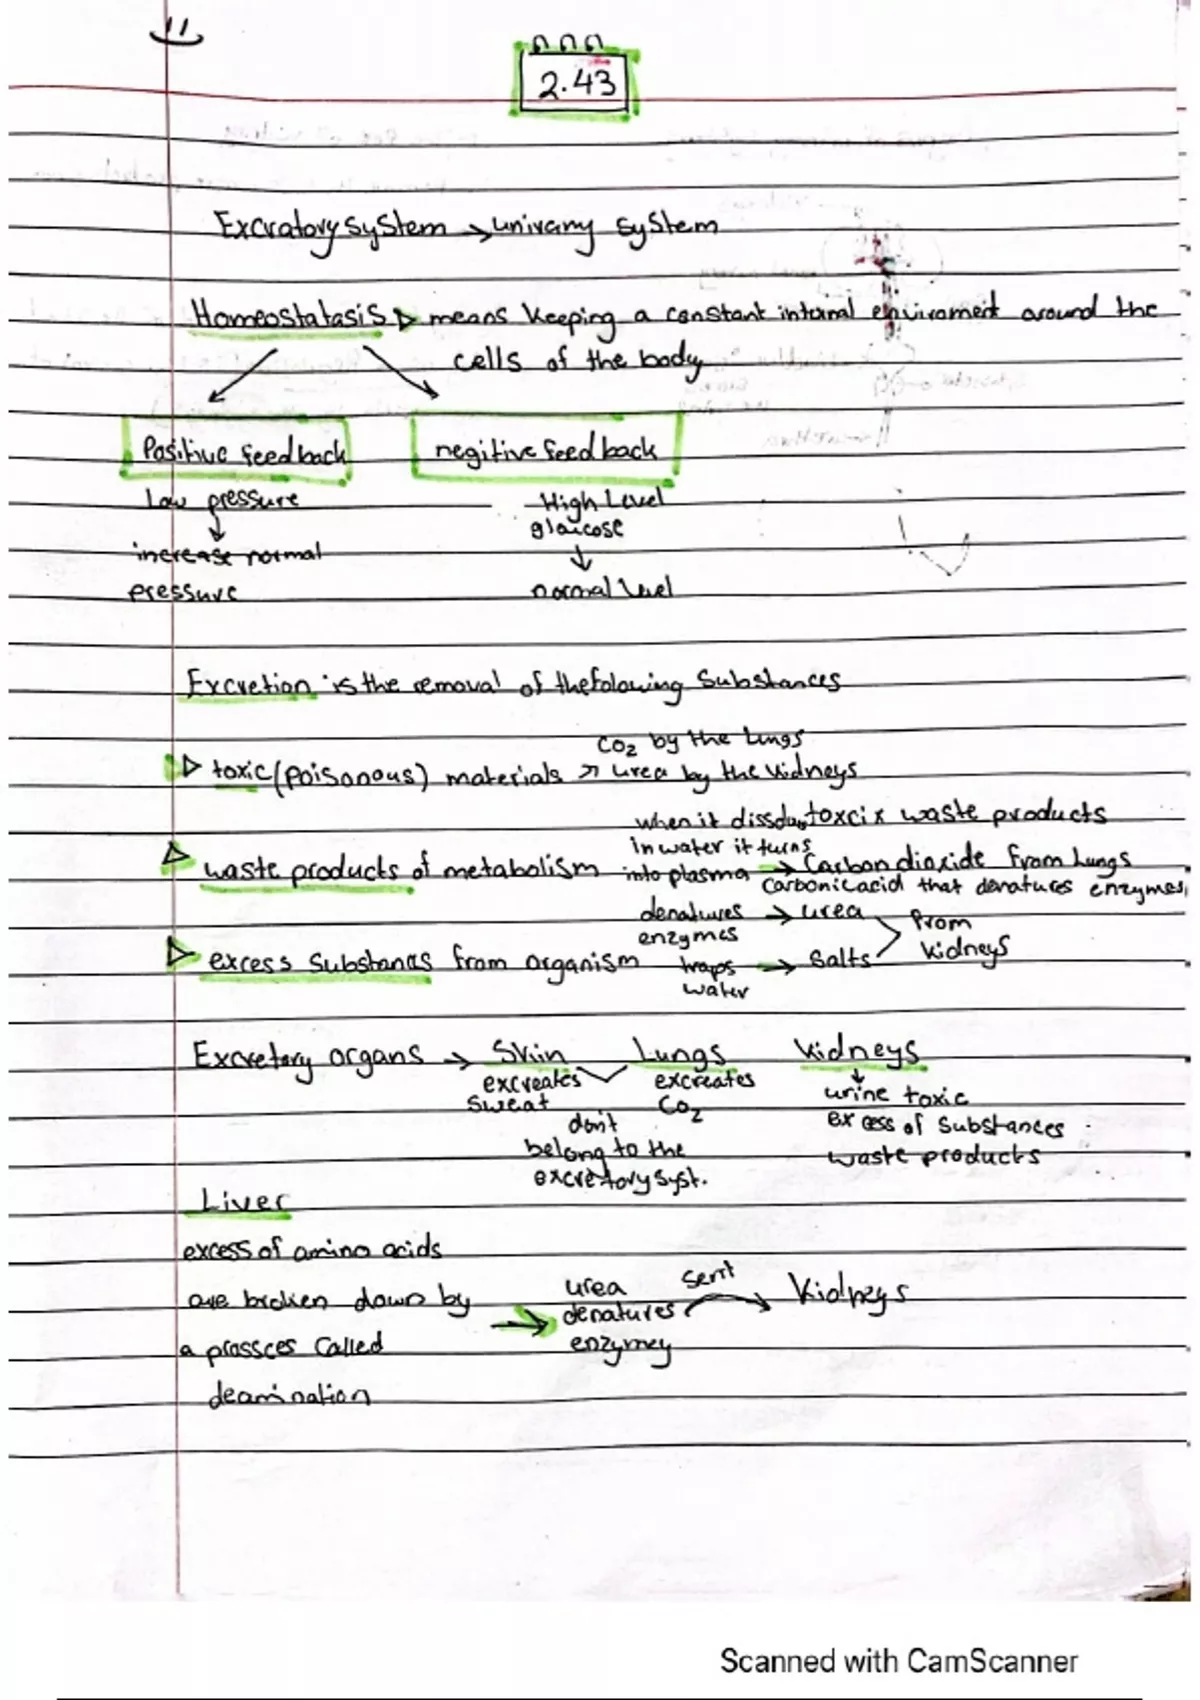 2.43
Excratory system → univany system
Homeostatasis ▷ means keeping a constant internal enviroment around the
cells of the body
Positive feedback negitive feedback
Low pressure High Level
glaucose
↓ ↓
increase normal
pressure normal level
Excretion is the removal of the folowing Substances
CO2 by the lungs
▷ toxic (poisonous) materials urea by the kidneys
when it toxcix waste products
in water it turns
▷ waste products of metabolism into plasma → Carbon dioxide from Lungs
Carbonic acid that denatures enzymes,
denatures → urea from
enzymes kidneys
▷ excess substances from organism traps → salts
water
Excretory organs → Skin Lungs Kidneys
excreates excreates ↓
sweat CO2 urine toxic
don't excess of substances
belong to the waste products
excretory syst.
Liver
excess of amino acids
are broken down by → urea sent Kidneys
denatures
a prossces Called enzymey
deamination
Scanned with CamScanner